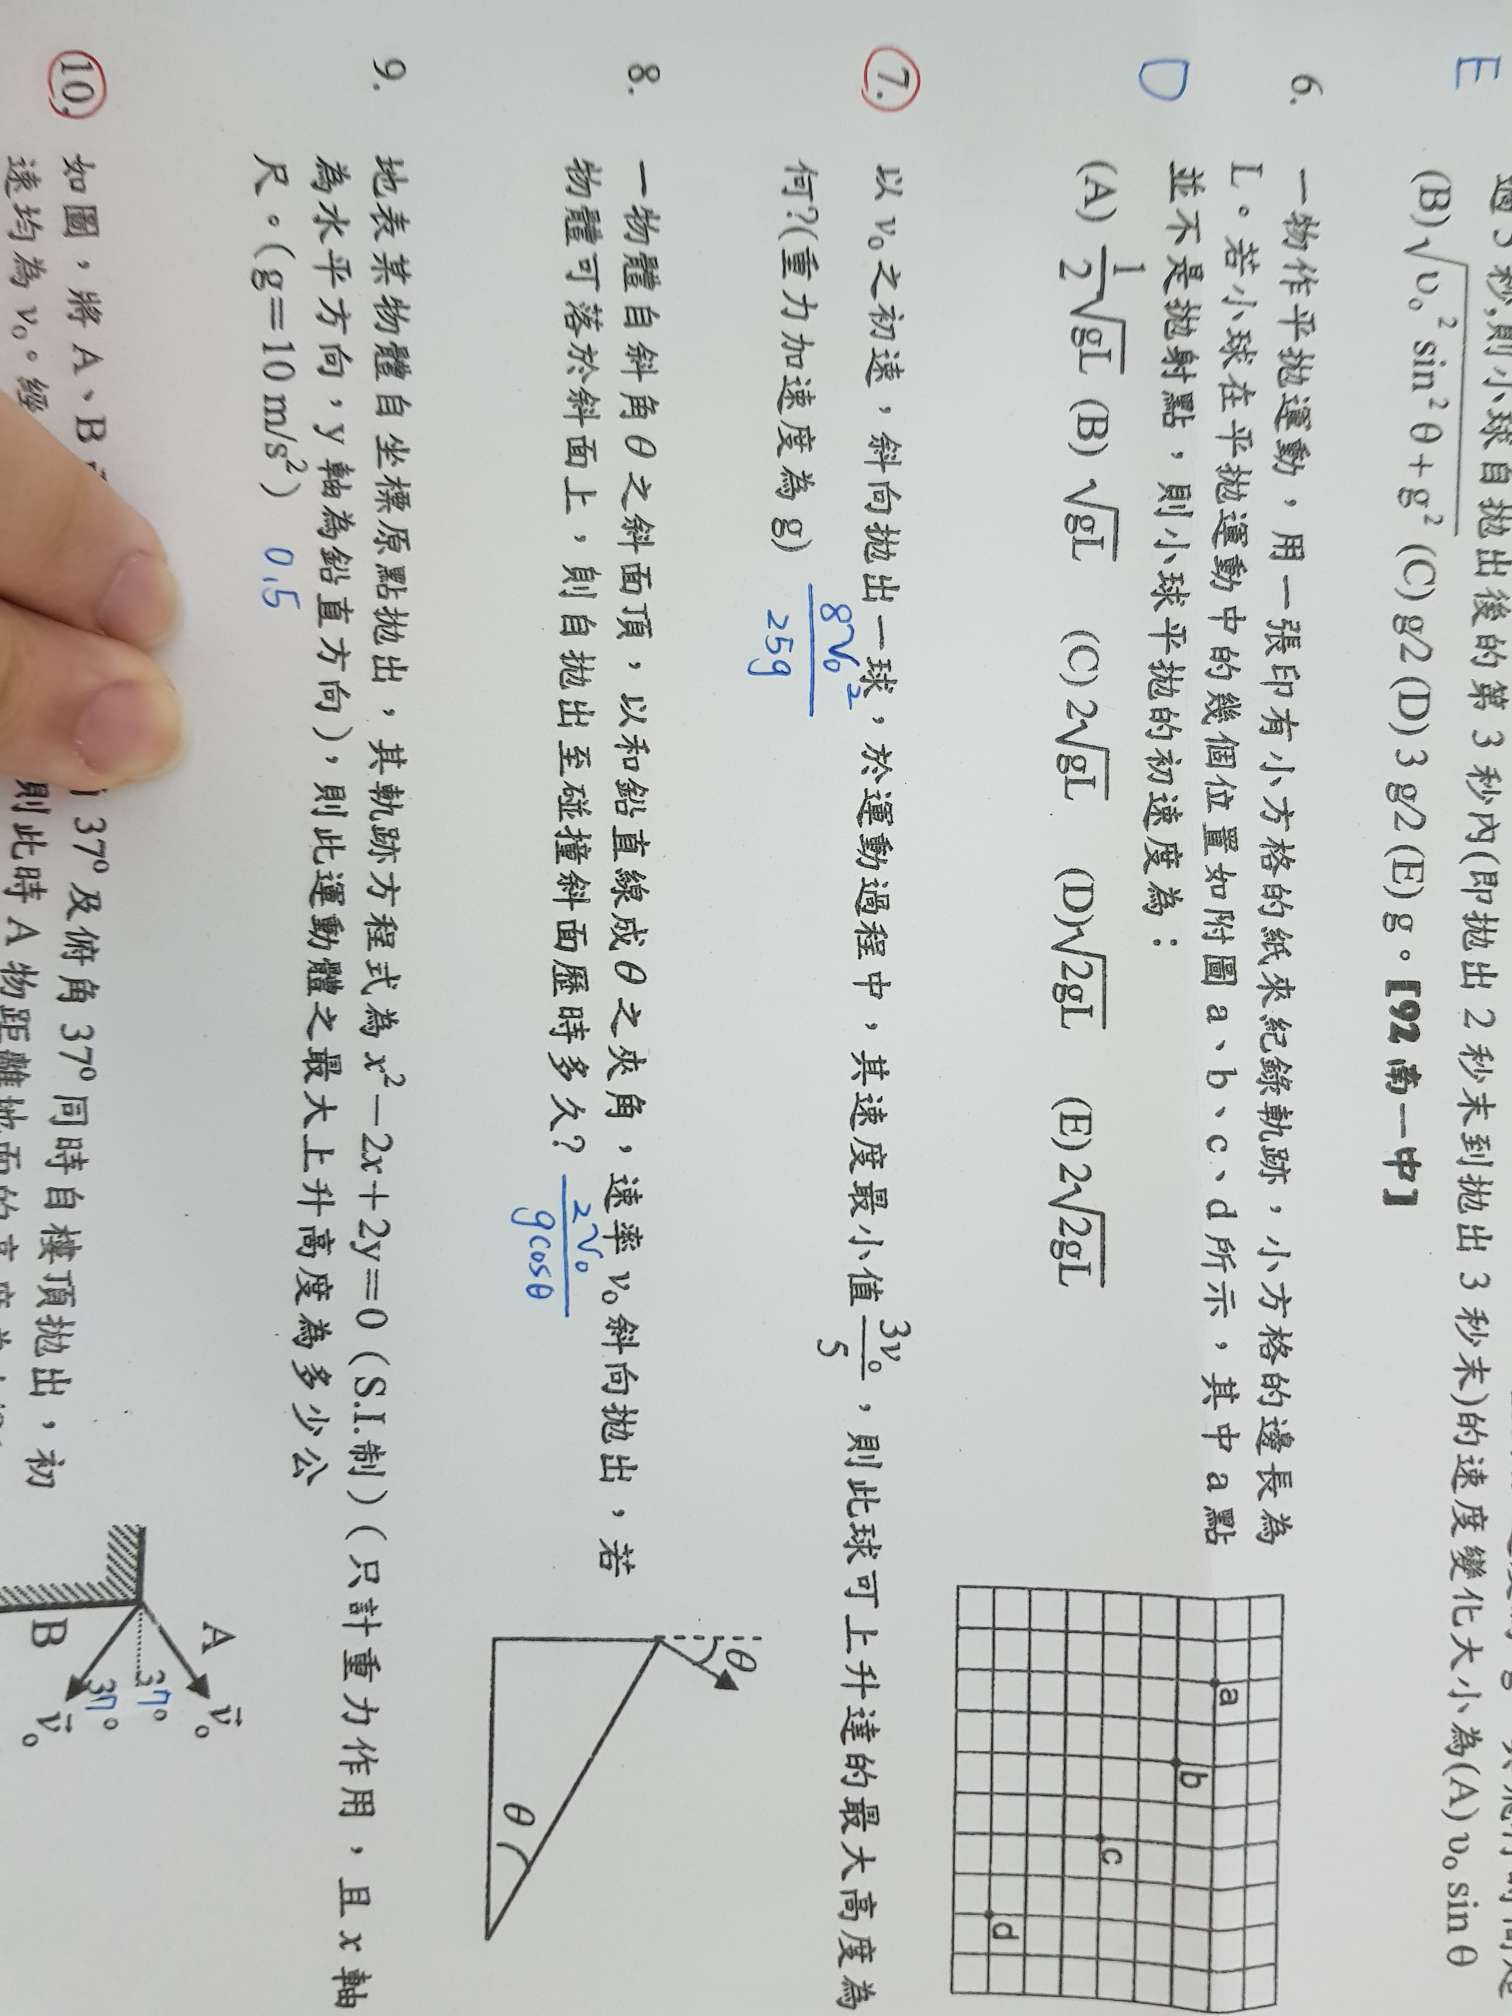 過3秒,則小球自拋出後的第3秒內(即拋出2秒末到拋出3秒末)的速度變化大小為(A) υ₀ sin θ
E
(B)√(υ₀² sin² θ + g²) (C) g/2 (D) 3 g/2 (E) g。【92 南一中】
6. 一物作平拋運動,用一張印有小方格的紙來紀錄軌跡,小方格的邊長為
L。若小球在平拋運動中的幾個位置如附圖 a、b、c、d 所示,其中 a 點
並不是拋射點,則小球平拋的初速度為:
D
(A) 1/2 √gL (B) √gL (C) 2√gL (D)√2gL (E) 2√2gL
a
b
c
d
7. 以 v₀ 之初速,斜向拋出一球,於運動過程中,其速度最小值 3v₀/5,則此球可上升達的最大高度為
何?(重力加速度為 g) 8v₀²/25g
8. 一物體自斜角 θ 之斜面頂,以和鉛直線成 θ 之夾角,速率 v₀ 斜向拋出,若
物體可落於斜面上,則自拋出至碰撞斜面歷時多久? 2v₀/gcosθ
θ
θ
9. 地表某物體自坐標原點拋出,其軌跡方程式為 x²－2x＋2y＝0(S.I.制)(只計重力作用,且 x 軸
為水平方向,y 軸為鉛直方向),則此運動體之最大上升高度為多少公
尺。(g＝10 m/s²) 0.5
10. 如圖,將 A、B 37⁰ 及俯角 37⁰ 同時自樓頂拋出,初
速均為 v₀。經 則此時 A 物距離地面的高度為
A
v⃗₀
37°
37°
B
v⃗₀